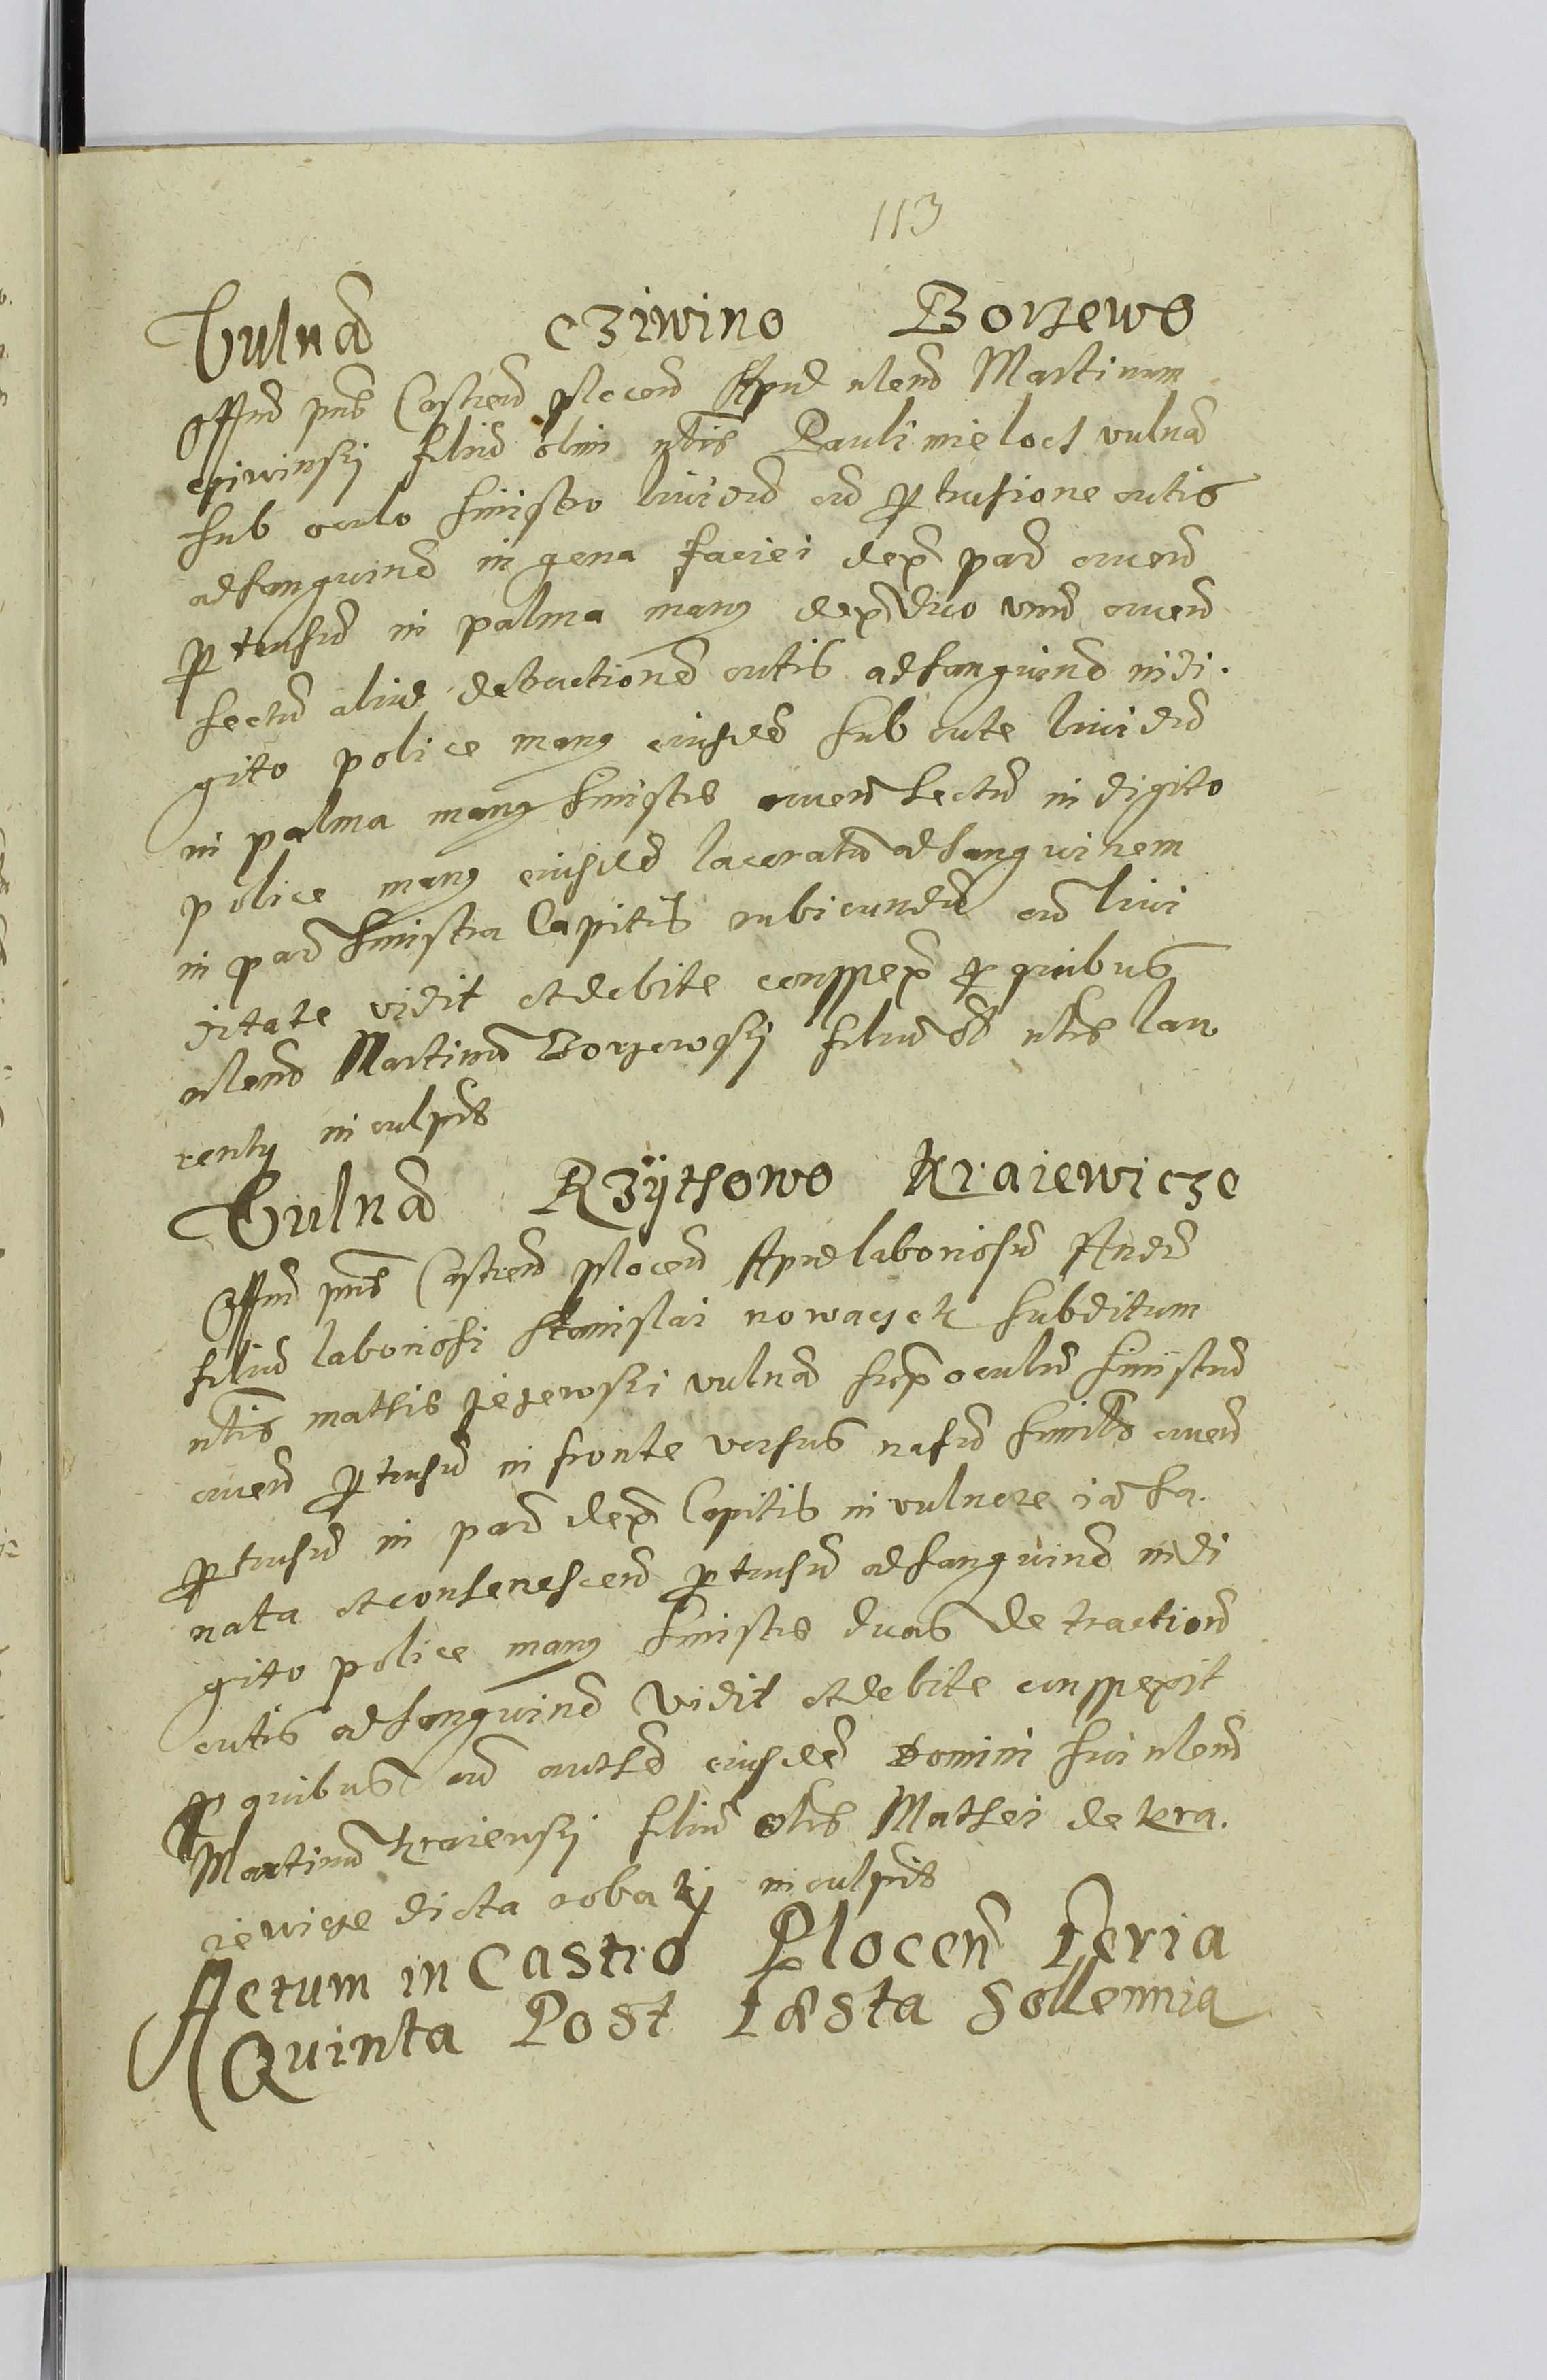 113
Vulnera Cziwino Borzewo
Offm pns Castren Plocen Apud nlem Martinum
cziwinskj filiu olim nlis Pauli mieloch vulnera
sub oculo sinistro liuidu cu pertusione cutis
ad sanguine in gena faciei dex par cruen
pertusu in palma manus dex duo unu cruen
sectu aliud detractione cutis ad sanguine in di.
gito police manus eiusde sub cute liuidu
in palma manus sinistre cruen sectu in digito
police manus eiusde laceratu ad sanguinem
in par sinistra Capitis rubicundu cu liui
ditate vidit et debite conspex pro quibus
nlem Martinu Borzewskj filiu nlis lau
rentij inculpat
Vulnera Rzÿthowo Kraiewicze
Offm pns Castren Plocen Apud laboriosu Andr
filiu laboriosi Stanislai nowaczek subditum
nlis mathie jezewski vulnera supra oculu sinistru
cruen pertusu in fronte versus nasu cruen
pertusu in par dex Capitis in vulnere ia sa.
nata et consenescen pertusu ad sanguine in di
gito police manus sinistre duas detraction
cutis ad sanguine vidit et debite conspexit
pro quibus cu eiusde Domini sui nlem
Martinu kraiewskj filiu nlis Mathei de kra.
iewicze dicta inculpat
Actum in Castro Plocen Feria
Quinta Post Festa Sollemnia